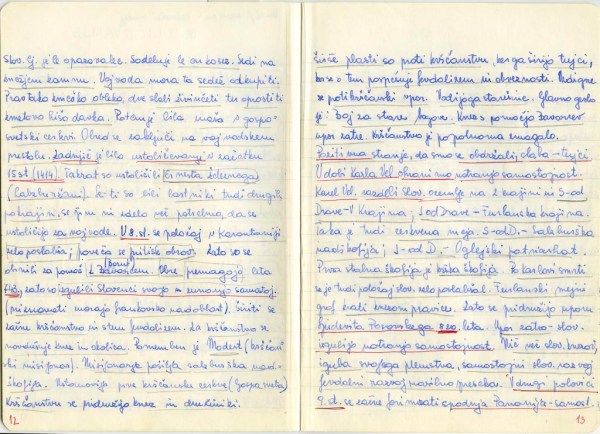 Slov. lj. je le oparovalec. Sodeluje le en kosez. Sedi na
knežjem kamnu. Vojvoda mora ta sedež odkupiti.
Prav tako kmečko obleko, dve slabi živinčeti ter oprostiti
kmetovo hišo davka. Potem je bila maša v gospo-
svetski cerkvi. Obred se zaključi na vojvodskem
prestolu. Zadnjič je bilo ustoličevanje v začetku
15 st (1414). Takrat so ustoličili Ernesta Železnega
(Habsburžani). Ker ti so bili lastniki tudi drugih
pokrajin, se jim ni zdelo več potrebno, da se
ustoličijo za vojvode. V 8. st. se položaj v Karantaniji
zelo poslabša, poveča se pritisk obrov. Zato so se
obrnili za pomoč k Bavarcem. Borut Obre premagajo leta
745, zato so izgubili Slovenci svojo zunanjo samostoj.
(priznavati morajo frankovsko nadoblast). Širiti se
začne krščanstvo in s tem fevdalizem. Za krščanstvo se
navdušuje knez in okolica. Pomemben je Modest (krščan-
ski misijonar). Misijonarje pošilja salzburška nad-
škofija. Ustanovijo prve krščanske cerkve (Gospa sveta)
Krščanstvu se pridružijo knez in družinniki.
12
Širše plasti so proti krščanstvu, ker ga širijo tujci,
ker se s tem pospešuje fevdalizem in obveznosti. Vzdigne
se protikrščanski upor. Vodijo ga starešine. Glavno geslo
je: Boj za stare bogove. Knez s pomočjo Bavarcev
upor zatre. Krščanstvo je popolnoma zmagalo.
Pozitivna stran je, da smo se obdržali oblast - tujci
V dobi Karla Vel. ohranimo notranjo samostojnost.
Karel Vel. razdeli slov. ozemlje na 2 krajini in S-od
Drave - V Krajina; J od Drave - Furlanska krajina.
Taka je tudi cerkvena meja: S-od D. - Salzburška
nadškofija; J-od D. - Oglejski patriarhat.
Prva stalna škofija je krška škofija. Po Karlovi smrti
se je tudi položaj slov. zelo poslabšal. Furlanski mejni
grof krati knezom pravice. Zato se pridružijo uporu
Ljudevita Posavskega 820. leta. Upor zatro - slov.
izgubijo notranjo samostojnost. Nič več slov. knezov,
izguba svojega plemstva, samostojni slov. razvoj
fevdalni razvoj nasilno prekoran. V drugi polovici
9. st. se začne formirati spodnja Panonija - samost.
13